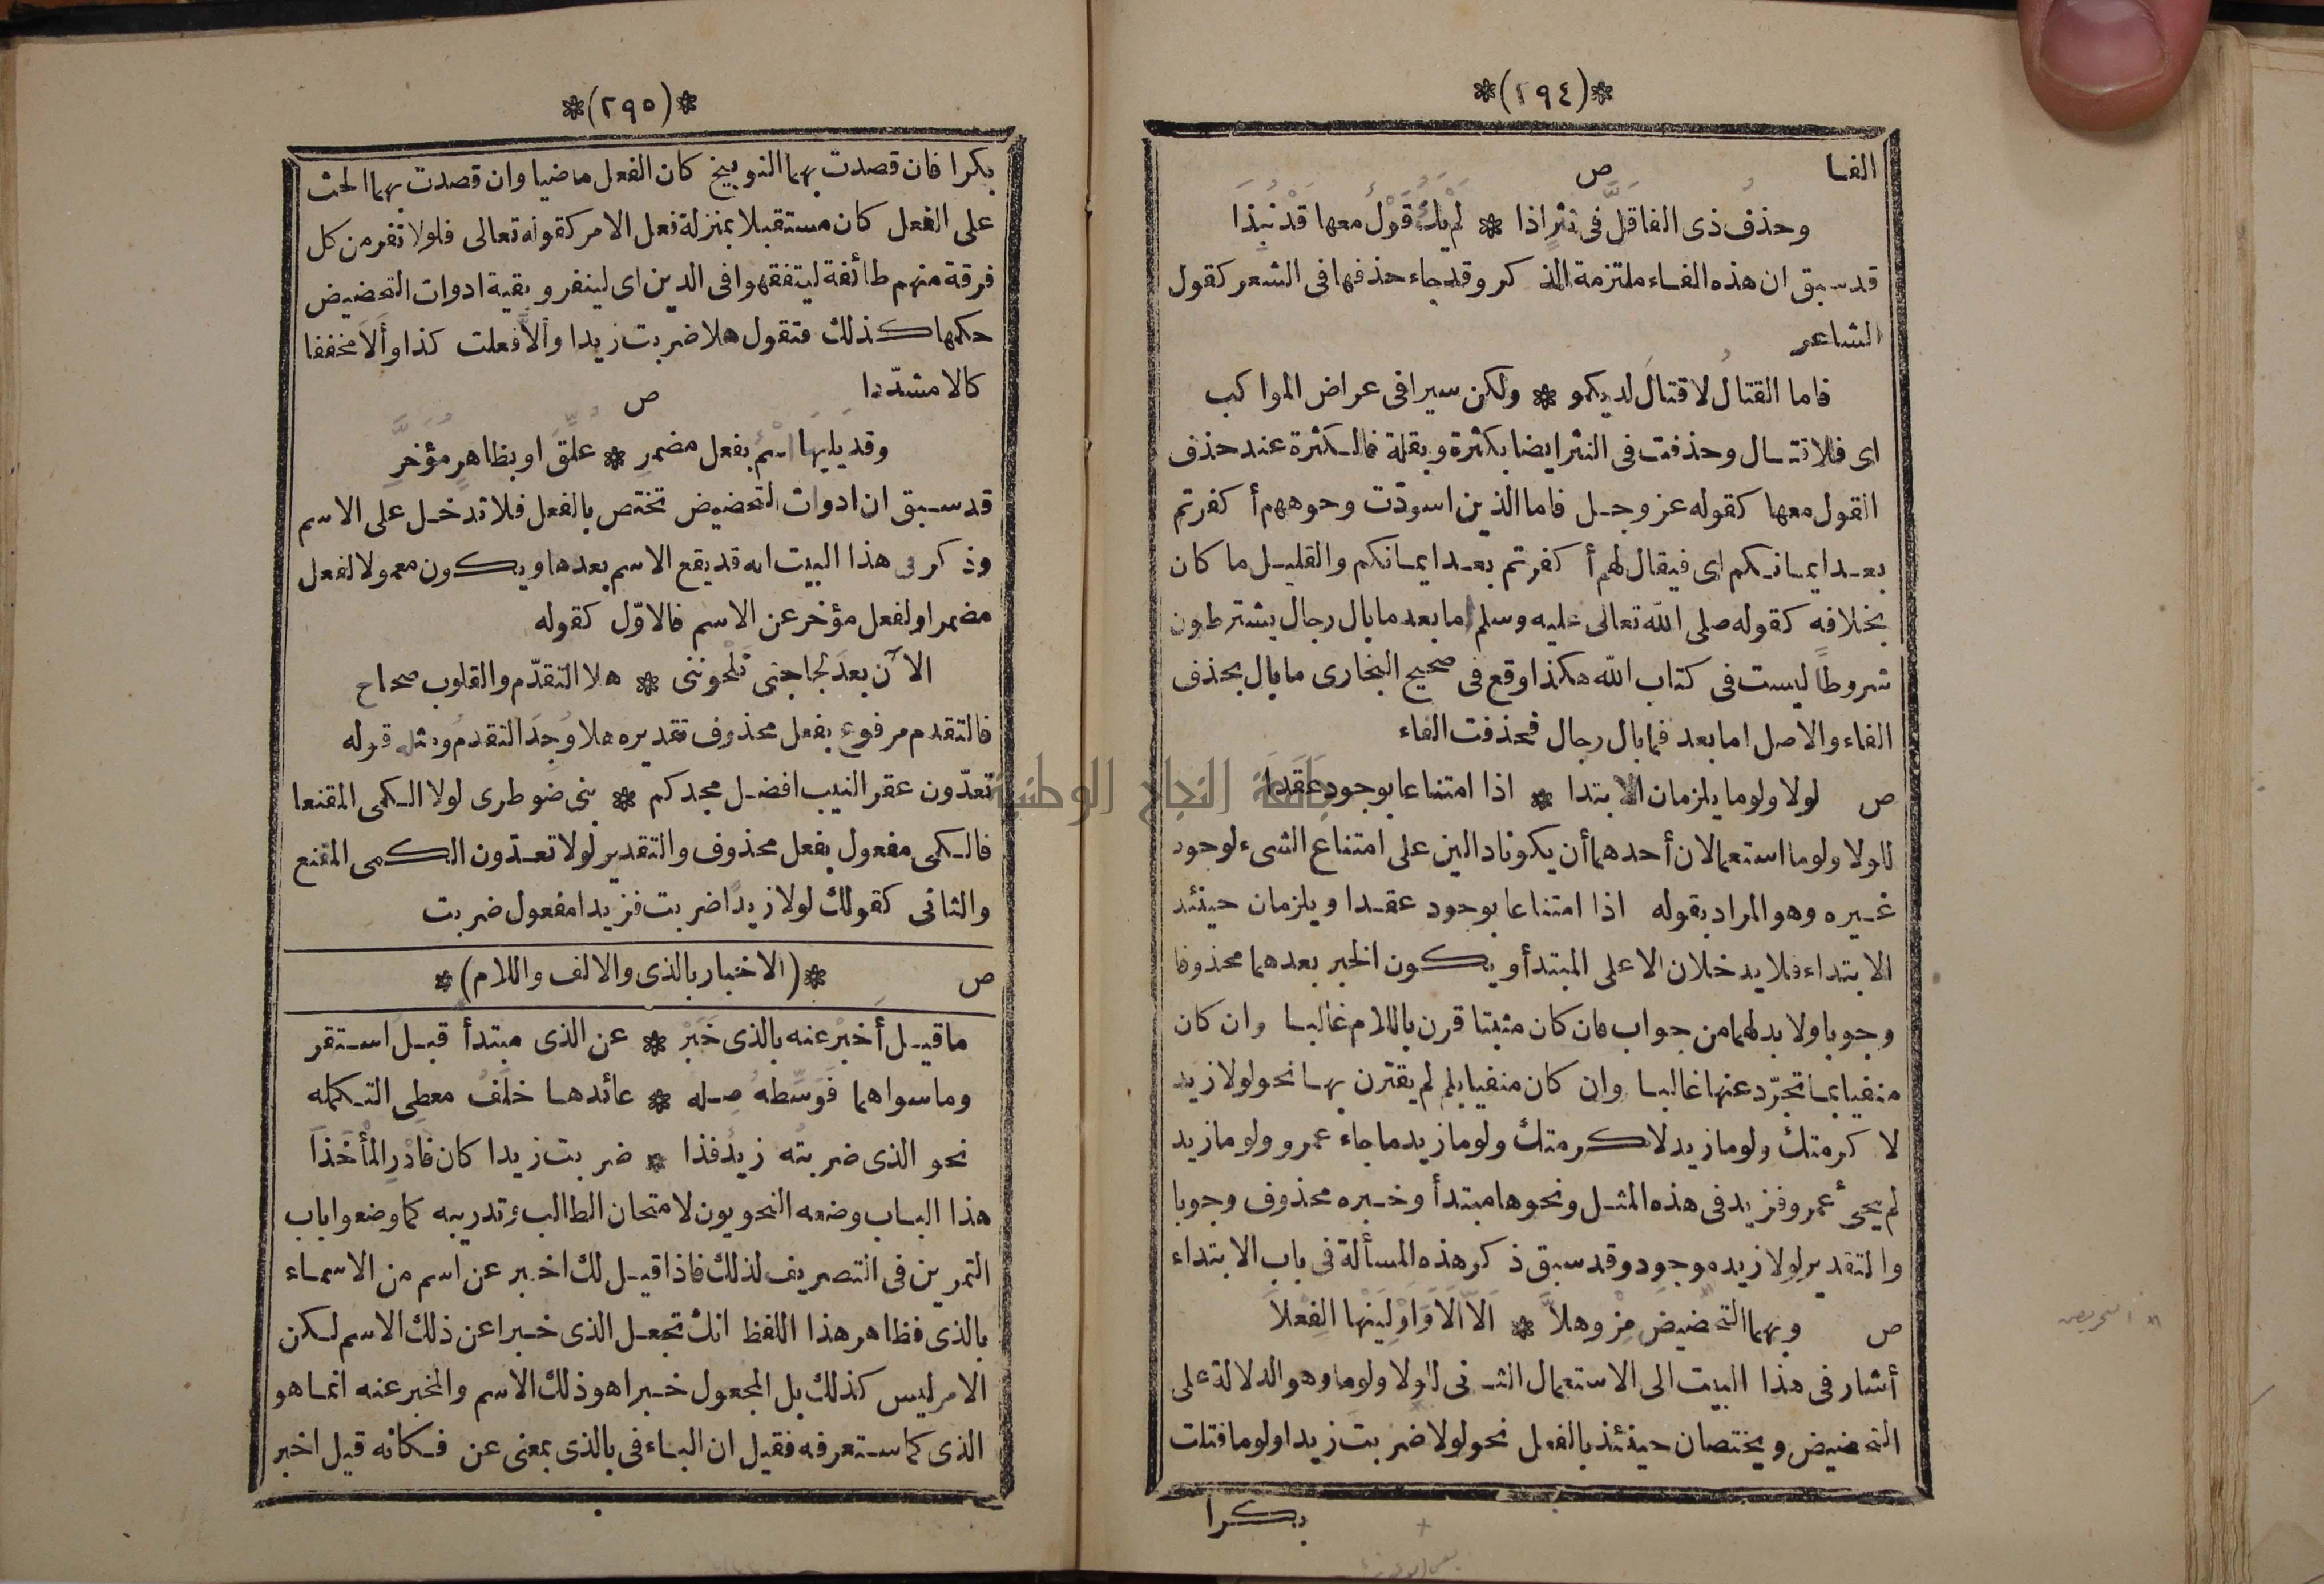 *(٢٩٤)*
الفا
ص
وحذف ذى الفا قلّ فى نثر اذا * لم يك قول معها قد نُبِذَا
قد سبق ان هذه الفاء ملتزمة الذكر وقد جاء حذفها فى الشعر كقول
الشاعر
فاما القتالُ لا قتالَ لديكمو * ولكن سيرا فى عراض المواكب
اى فلا قتال وحذفت فى النثر ايضا بكثرة وبقلة فالكثرة عند حذف
القول معها كقوله عز وجل فاما الذين اسودّت وجوههم أكفرتم
بعد ايمانكم اى فيقال لهم أكفرتم بعد ايمانكم والقليل ما كان
بخلافه كقوله صلى الله تعالى عليه وسلم اما بعد ما بال رجال يشترطون
شروطاً ليست فى كتاب الله هكذا وقع فى صحيح البخارى ما بال بحذف
الفاء والاصل اما بعد فما بال رجال فحذفت الفاء
ص لولا ولوما يلزمان الابتدا * اذا امتناعا بوجود عَقَدَا
للولا ولوما استعمالان أحدهما أن يكونا دالين على امتناع الشىء لوجود
غيره وهو المراد بقوله اذا امتناعا بوجود عقدا ويلزمان حينئذ
الابتداء فلا يدخلان الا على المبتدأ ويكون الخبر بعدهما محذوفا
وجوبا ولا بد لهما من جواب فان كان مثبتا قرن باللام غالبا وان كان
منفيا بما تجرّد عنها غالبا وان كان منفيا بلم لم يقترن بها نحو لولا زيد
لا كرمتك ولوما زيد لاكرمتك ولوما زيد ما جاء عمرو ولوما زيد
لم يجئ عمرو فزيد فى هذه المثل ونحوها مبتدأ وخبره محذوف وجوبا
والتقدير لولا زيد موجود وقد سبق ذكر هذه المسألة فى باب الابتداء
ص وبهما التحضيضَ مِزْ وهلاَّ * اَلاّ اَلاَ وَاَوْلِيَنْها الفِعْلاَ
أشار فى هذا البيت الى الاستعمال الثانى للولا ولوما وهو الدلالة على
التحضيض ويختصان حينئذ بالفعل نحو لولا ضربت زيدا ولوما قتلت
بكرا
*(٢٩٥)*
بكرا فان قصدت بهما التوبيخ كان الفعل ماضيا وان قصدت بهما الحث
على الفعل كان مستقبلا بمنزلة فعل الامر كقوله تعالى فلولا نفر من كل
فرقة منهم طائفة ليتفقهوا فى الدين اى لينفر وبقية ادوات التحضيض
حكمها كذلك فتقول هلا ضربت زيدا وألاّ فعلت كذا وأَلاَ مخففا
كالا مشدّدا
ص
وقد يليها اسْمٌ بفعل مضمرِ * عُلِّقَ او بظاهرٍ مُؤخَّرِ
قد سبق ان ادوات التحضيض تختص بالفعل فلا تدخل على الاسم
وذكر فى هذا البيت انه قد يقع الاسم بعدها ويكون معمولا لفعل
مضمر او لفعل مؤخر عن الاسم فالاوّل كقوله
الآن بعد لجاجتى تَلْحوننى * هلا التقدّم والقلوب صحاح
فالتقدم مرفوع بفعل محذوف تقديره هلا وُجِدَ التقدمُ ومثله قوله
تعدّون عقر النيب افضل مجدكم * بنى ضوطرى لولا الكمى المقنعا
فالكمى مفعول بفعل محذوف والتقدير لولا تعدّون الكمى المقنع
والثانى كقولك لولا زيداً ضربت فزيدا مفعول ضربت
ص *(الاخبار بالذى والالف واللام)*
ما قيل أخبر عنه بالذى خَبَرْ * عن الذى مبتدأ قبل استقر
وما سواهما فَوَسِّطهُ صله * عائدها خلَفُ معطِى التكمله
نحو الذى ضربته زيدٌ فذا * ضربت زيدا كان فَادْرِ المأْخَذَا
هذا الباب وضعه النحويون لامتحان الطالب وتدريبه كما وضعوا باب
التمرين فى التصريف لذلك فاذا قيل لك اخبر عن اسم من الاسماء
بالذى فظاهر هذا اللفظ انك تجعل الذى خبرا عن ذلك الاسم لكن
الامر ليس كذلك بل المجعول خبرا هو ذلك الاسم والمخبر عنه انما هو
الذى كما ستعرفه فقيل ان الباء فى بالذى بمعنى عن فكانه قيل اخبر
جامعة النجاح الوطنية